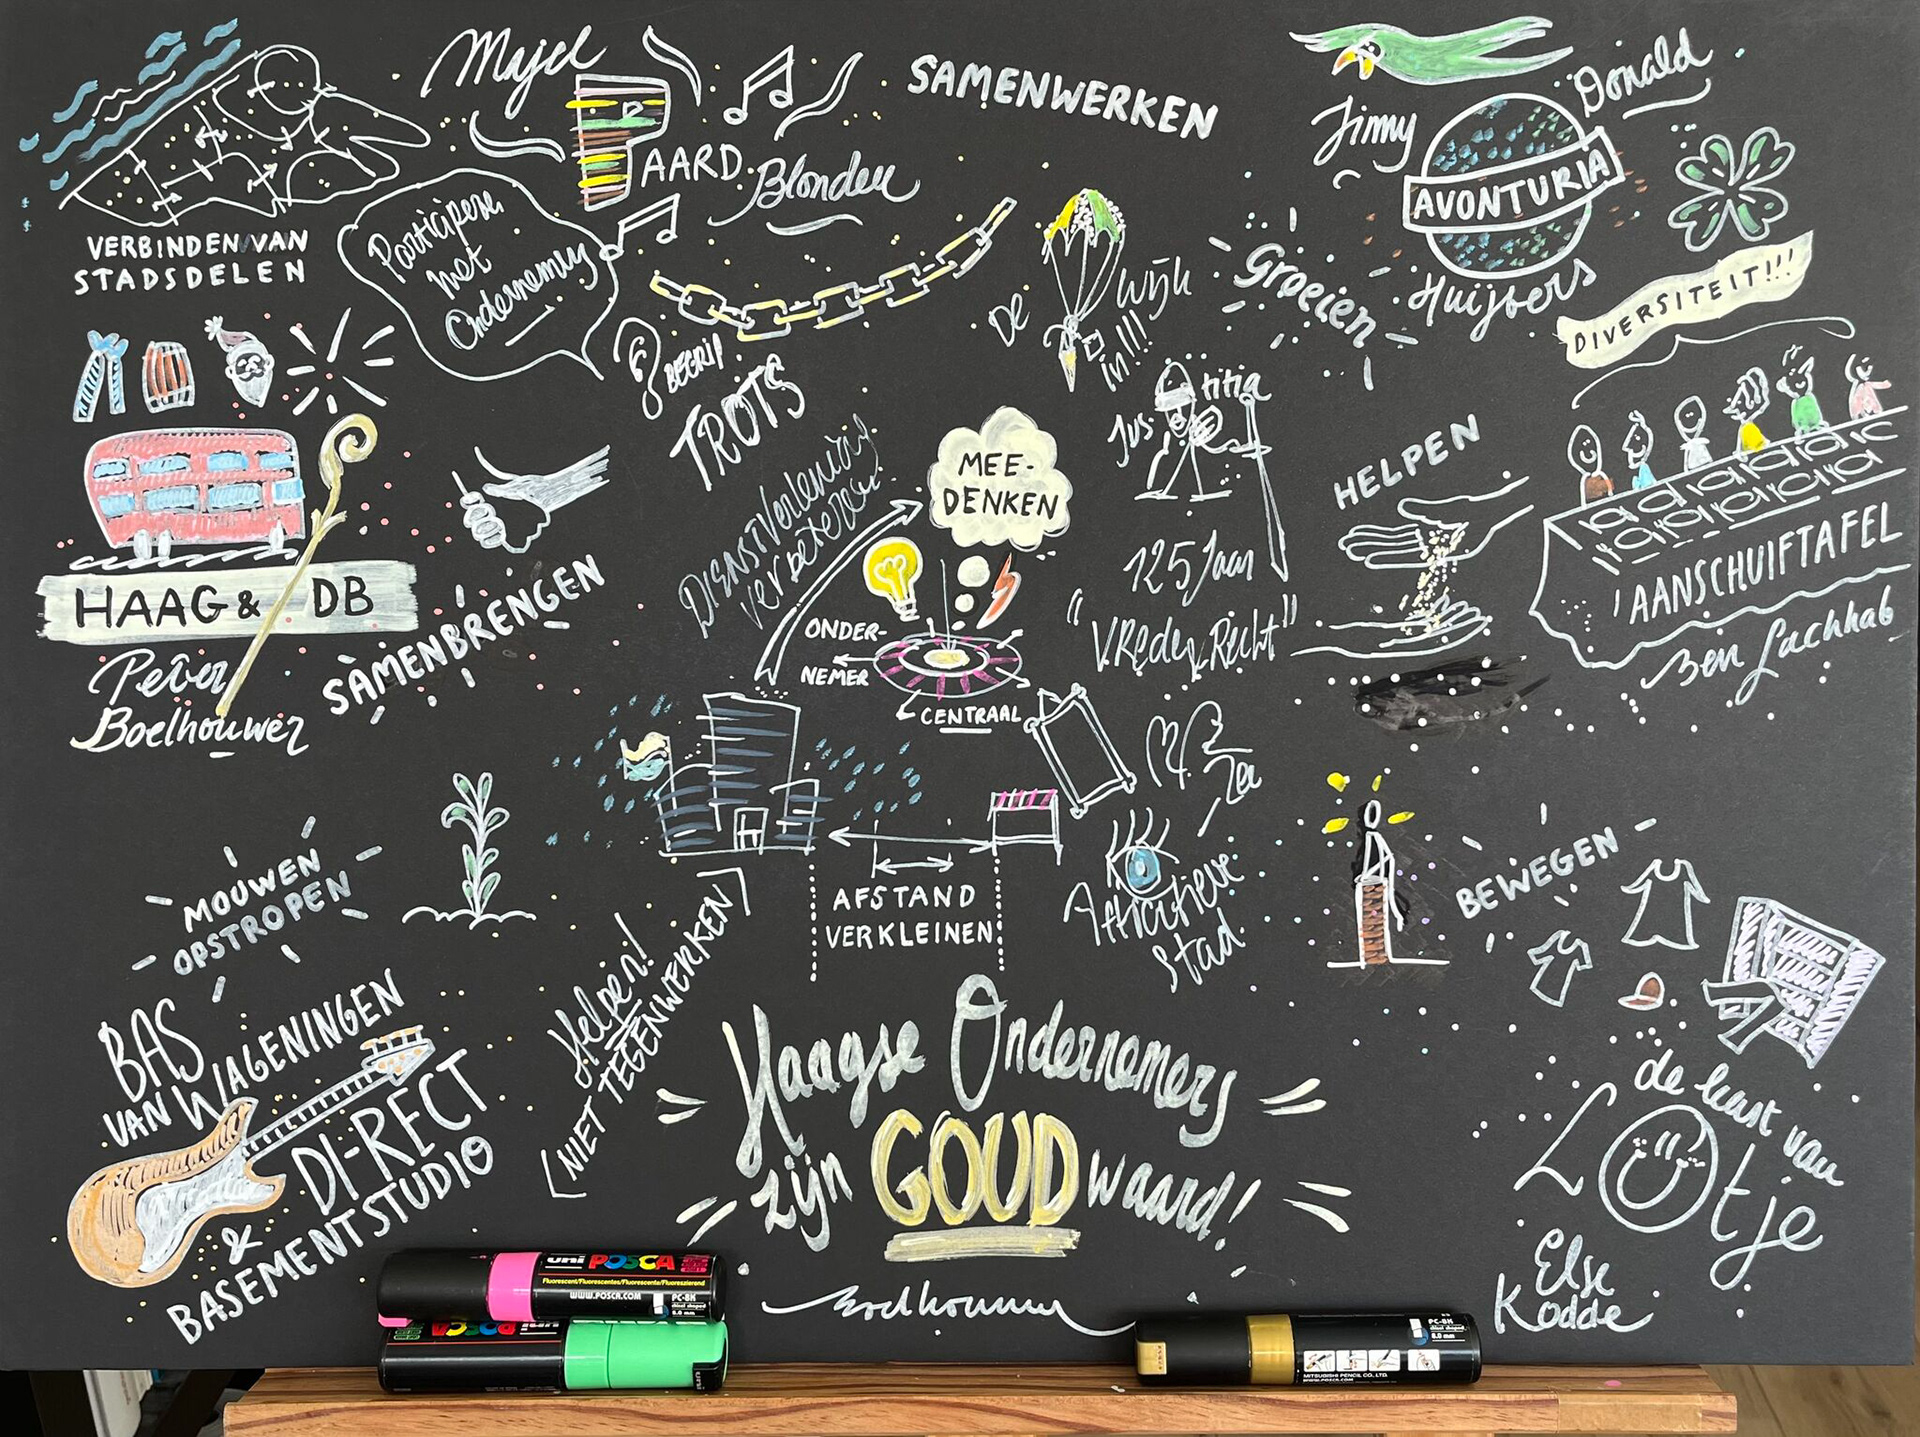 VERBINDEN VAN
STADSDELEN
Majel
PAARD
Blonden
Participeren
met
Onderneming
SAMENWERKEN
Jimmy
Donald
AVONTURIA
Huijbers
Groeien
De Wijk
in!!!
DIVERSITEIT!!!
BEGRIP
TROTS
HAAG & DB
Peter
Boelhouwer
SAMENBRENGEN
Dienstverlening
verbeteren
MEE-
DENKEN
ONDER-
NEMER
CENTRAAL
Justitia
125 Jaar
"Vrede & Recht"
HELPEN
AANSCHUIFTAFEL
Ben Lachhab
MOUWEN
OPSTROPEN
AFSTAND
VERKLEINEN
Helpen!
(NIET TEGENWERKEN)
Zee
Attractieve
Stad
BEWEGEN
BAS
VAN WAGENINGEN
DI-RECT
&
BASEMENT STUDIO
Haagse Ondernemers
zijn GOUD waard!
de kast van
Lotje
Else
Kodde
uni POSCA
Fluorescent/Fluorescentes/Fluorescente/Fluoreszierend
WWW.POSCA.COM
PC-8K
8.0 mm
uni POSCA
PC-8K
8.0 mm
MITSUBISHI PENCIL CO., LTD.
WWW.POSCA.COM